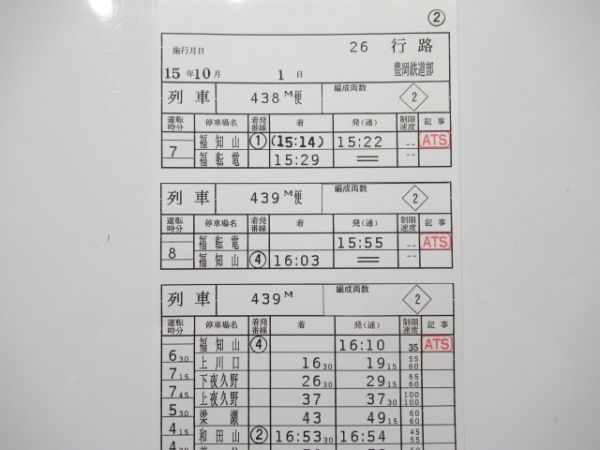 ②
26 行路
施行月日
15年10月 1日 豊岡鉄道部
列車 438M便 編成両数 2
運転時分 停車場名 着発番線 着 発(通) 制限速度 記事
福知山 ① (15:14) 15:22 -- ATS
7 福転電 15:29 == --
列車 439M便 編成両数 2
運転時分 停車場名 着発番線 着 発(通) 制限速度 記事
福転電 15:55 -- ATS
8 福知山 ④ 16:03 == --
列車 439M 編成両数 2
運転時分 停車場名 着発番線 着 発(通) 制限速度 記事
福知山 ④ 16:10 35 ATS
6 30 上川口 16 30 19 15 55 60
7 15 下夜久野 26 30 29 15 65 60
7 45 上夜久野 37 37 30 100 100
5 30 梁瀬 43 49 15 60 60
4 15 和田山 ② 16:53 30 16:54 45 55